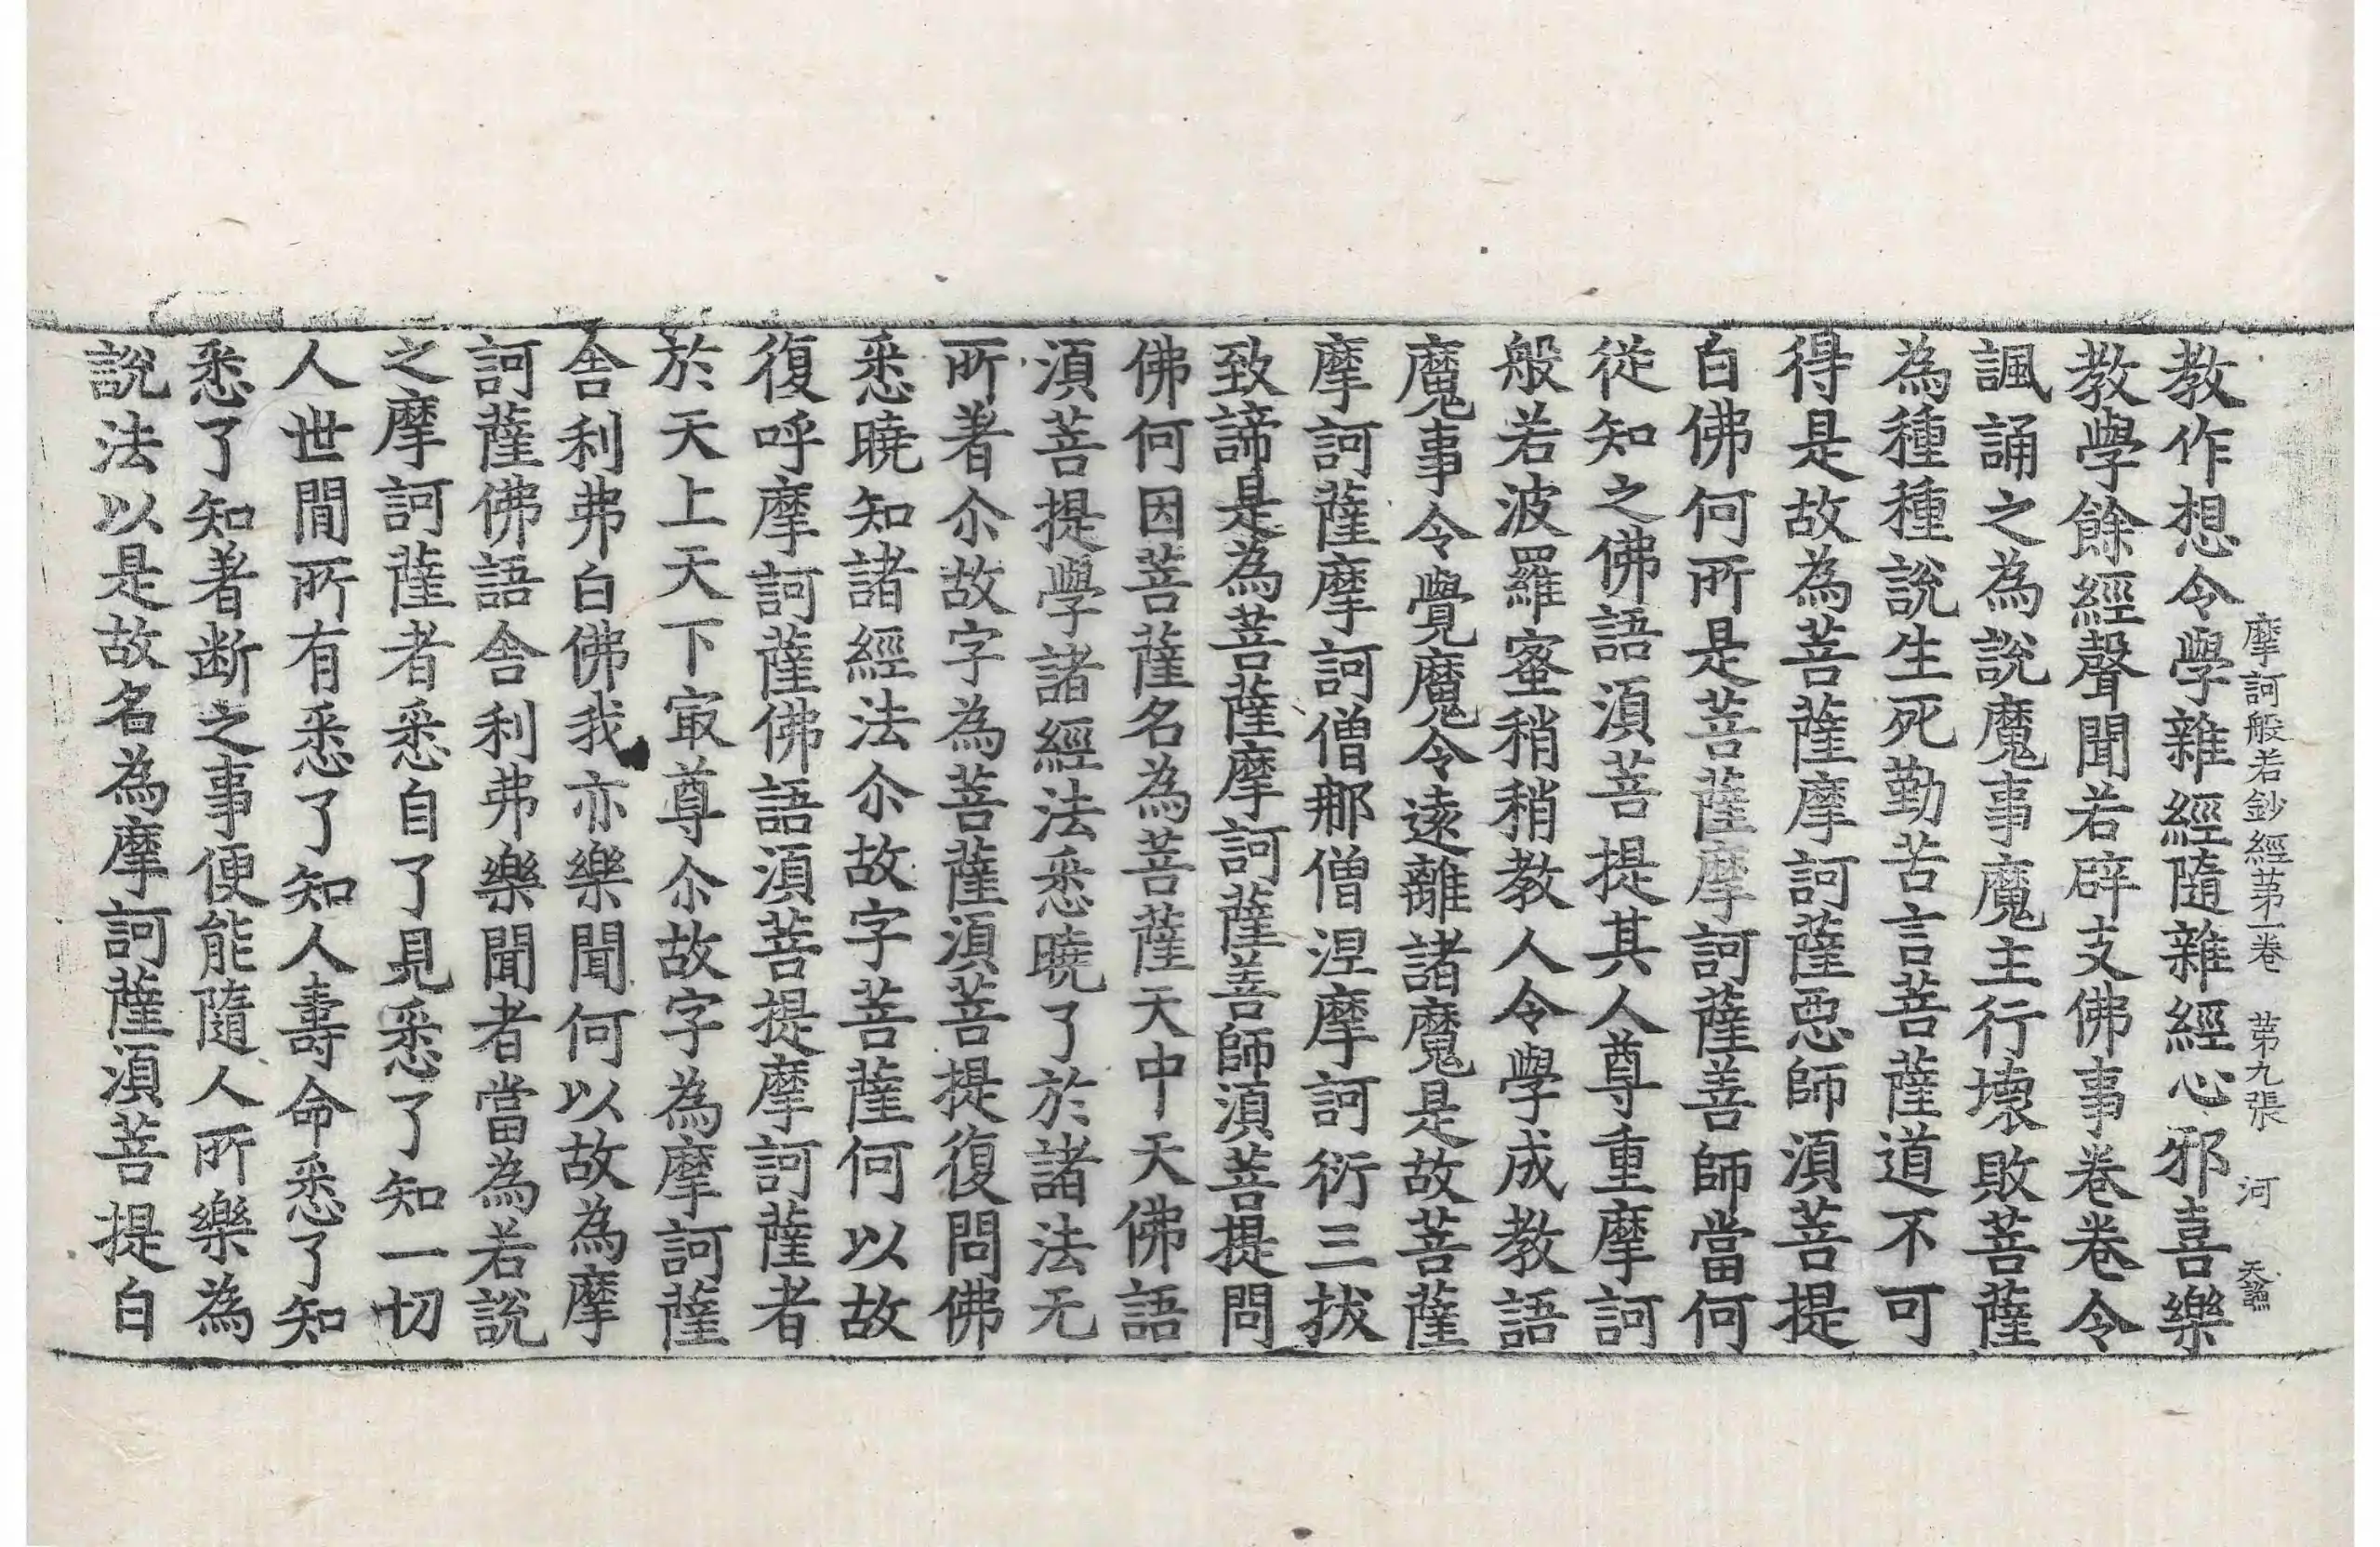 摩訶般若鈔經第一卷　第九張　河　天
教作想令學雜經隨雜經心邪喜樂
教學餘經聲聞若辟支佛事卷卷令
諷誦之為說魔事魔主行壞敗菩薩
為種種說生死勤苦言菩薩道不可
得是故為菩薩摩訶薩惡師須菩提
白佛何所是菩薩摩訶薩善師當何
從知之佛語須菩提其人尊重摩訶
般若波羅蜜稍稍教人令學成教語
魔事令覺魔令遠離諸魔是故菩薩
摩訶薩摩訶僧那僧涅摩訶衍三拔
致諦是為菩薩摩訶薩善師須菩提問
佛何因菩薩名為菩薩天中天佛語
須菩提學諸經法悉曉了於諸法无
所著尒故字為菩薩須菩提復問佛
悉曉知諸經法尒故字菩薩何以故
復呼摩訶薩佛語須菩提摩訶薩者
於天上天下㝡尊尒故字為摩訶薩
舎利弗白佛我亦樂聞何以故為摩
訶薩佛語舎利弗樂聞者當為若說
之摩訶薩者悉自了見悉了知一切
人世閒所有悉了知人壽命悉了知
悉了知著断之事便能隨人所樂為
說法以是故名為摩訶薩須菩提白